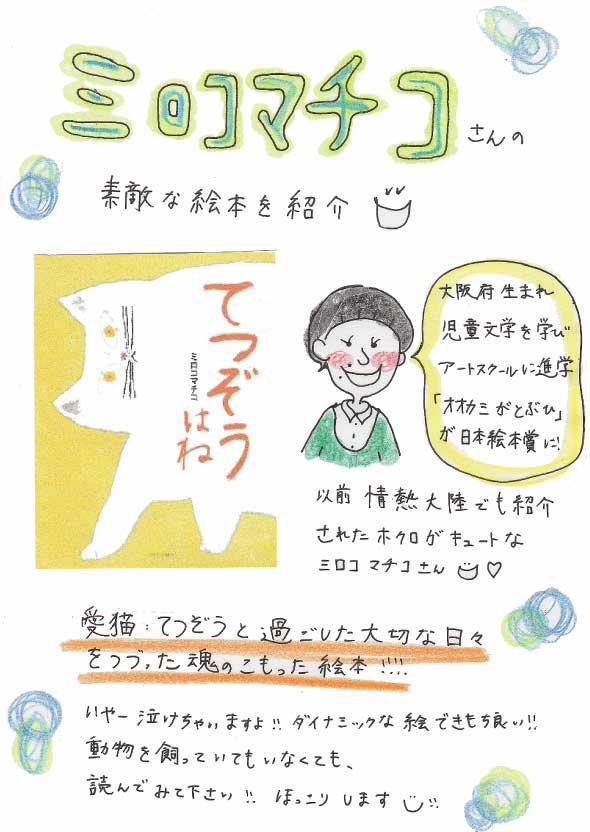 ミロコマチコさんの
素敵な絵本を紹介
てつぞう
はね
ミロコマチコ
大阪府生まれ
児童文学を学び
アートスクールに進学
「オオカミがとぶひ」
が日本絵本賞に!
以前 情熱大陸でも紹介
されたホクロがキュートな
ミロコマチコさん♡
愛猫:てつぞうと過ごした大切な日々
をつづった魂のこもった絵本!!!!
いやー泣けちゃいますよ!!ダイナミックな絵できもち良い!!
動物を飼っていてもいなくても、
読んでみて下さい!! ほっこりします